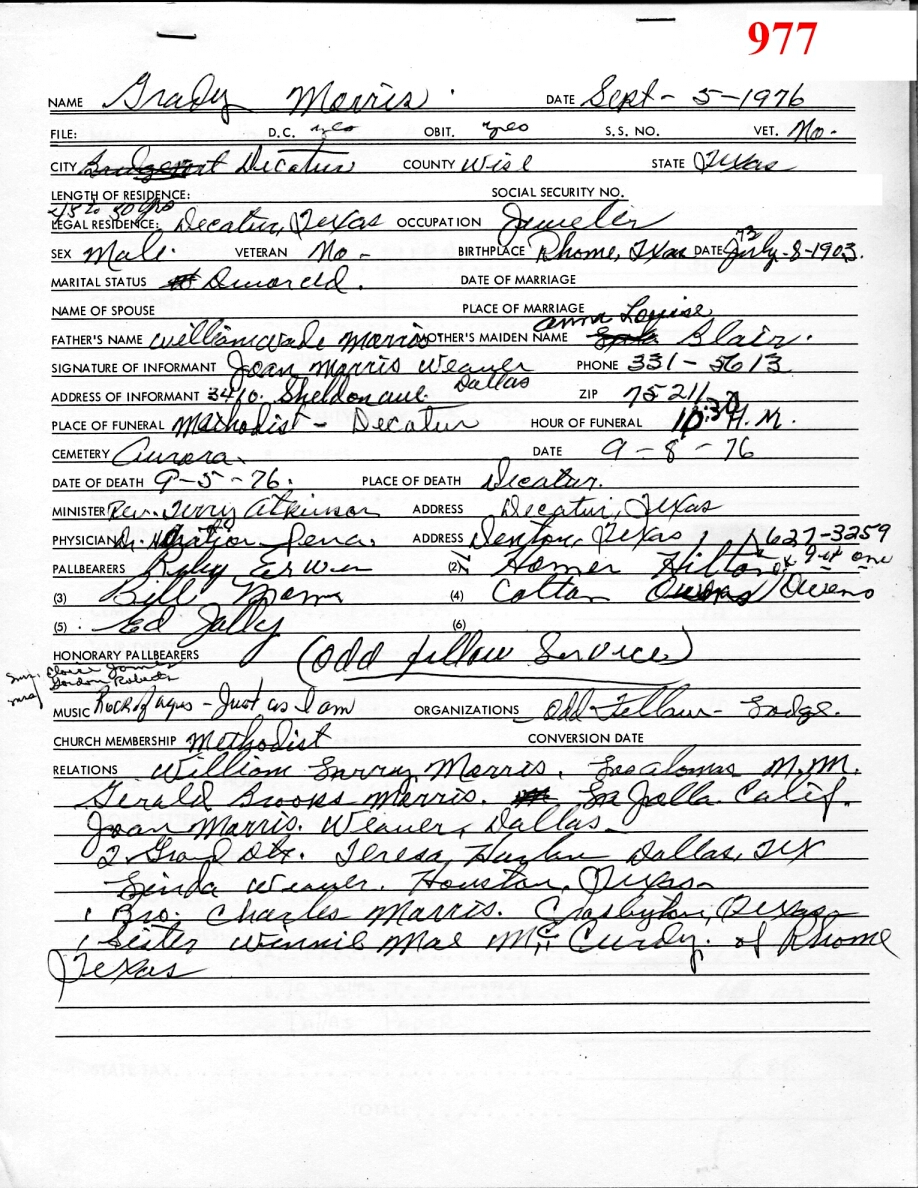 977
NAME Grady Morris DATE Sept - 5 - 1976
FILE: D.C. yes OBIT. yes S.S. NO. VET. No -
CITY Decatur COUNTY Wise STATE Texas
LENGTH OF RESIDENCE: SOCIAL SECURITY NO.
45 to 50 yrs
LEGAL RESIDENCE: Decatur, Texas OCCUPATION Jeweler
SEX Male VETERAN No - BIRTHPLACE Rhome, Texas DATE July - 8 - 1903. 73
MARITAL STATUS Divorced. DATE OF MARRIAGE
NAME OF SPOUSE PLACE OF MARRIAGE
FATHER'S NAME William Wade Morris MOTHER'S MAIDEN NAME Anna Louise Blair.
SIGNATURE OF INFORMANT Joan Morris Weaver PHONE 331 - 5613
ADDRESS OF INFORMANT 3410. Sheldon ave. Dallas ZIP 75211
PLACE OF FUNERAL Methodist - Decatur HOUR OF FUNERAL 10:30 A.M.
CEMETERY Aurora. DATE 9 - 8 - 76
DATE OF DEATH 9-5-76. PLACE OF DEATH Decatur.
MINISTER Rev. Terry Atkinson ADDRESS Decatur, Texas
PHYSICIAN Dr. Pena. ADDRESS Denton, Texas 627-3259
PALLBEARERS Ruby Erwin (2) Homer Hilton
(3) Bill (4) Cotton Owens
(5) Ed Jolly (6)
HONORARY PALLBEARERS (Odd fellow Service)
Cloise Jones
Gordon Roberts
MUSIC Rock of ages - Just as I am ORGANIZATIONS Odd Fellows - Lodge.
CHURCH MEMBERSHIP Methodist CONVERSION DATE
RELATIONS William Morris. Los Alamos N.M.
Gerald Brooks Morris. La Jolla Calif.
Joan Morris. Weaver, Dallas -
2 Grand Dtr. Teresa Dallas, TX
Linda Weaver. Houston, Texas -
1 Bro. Charles Morris. Crosbyton, Texas -
1 Sister Winnie Mae McCurdy. of Rhome
Texas